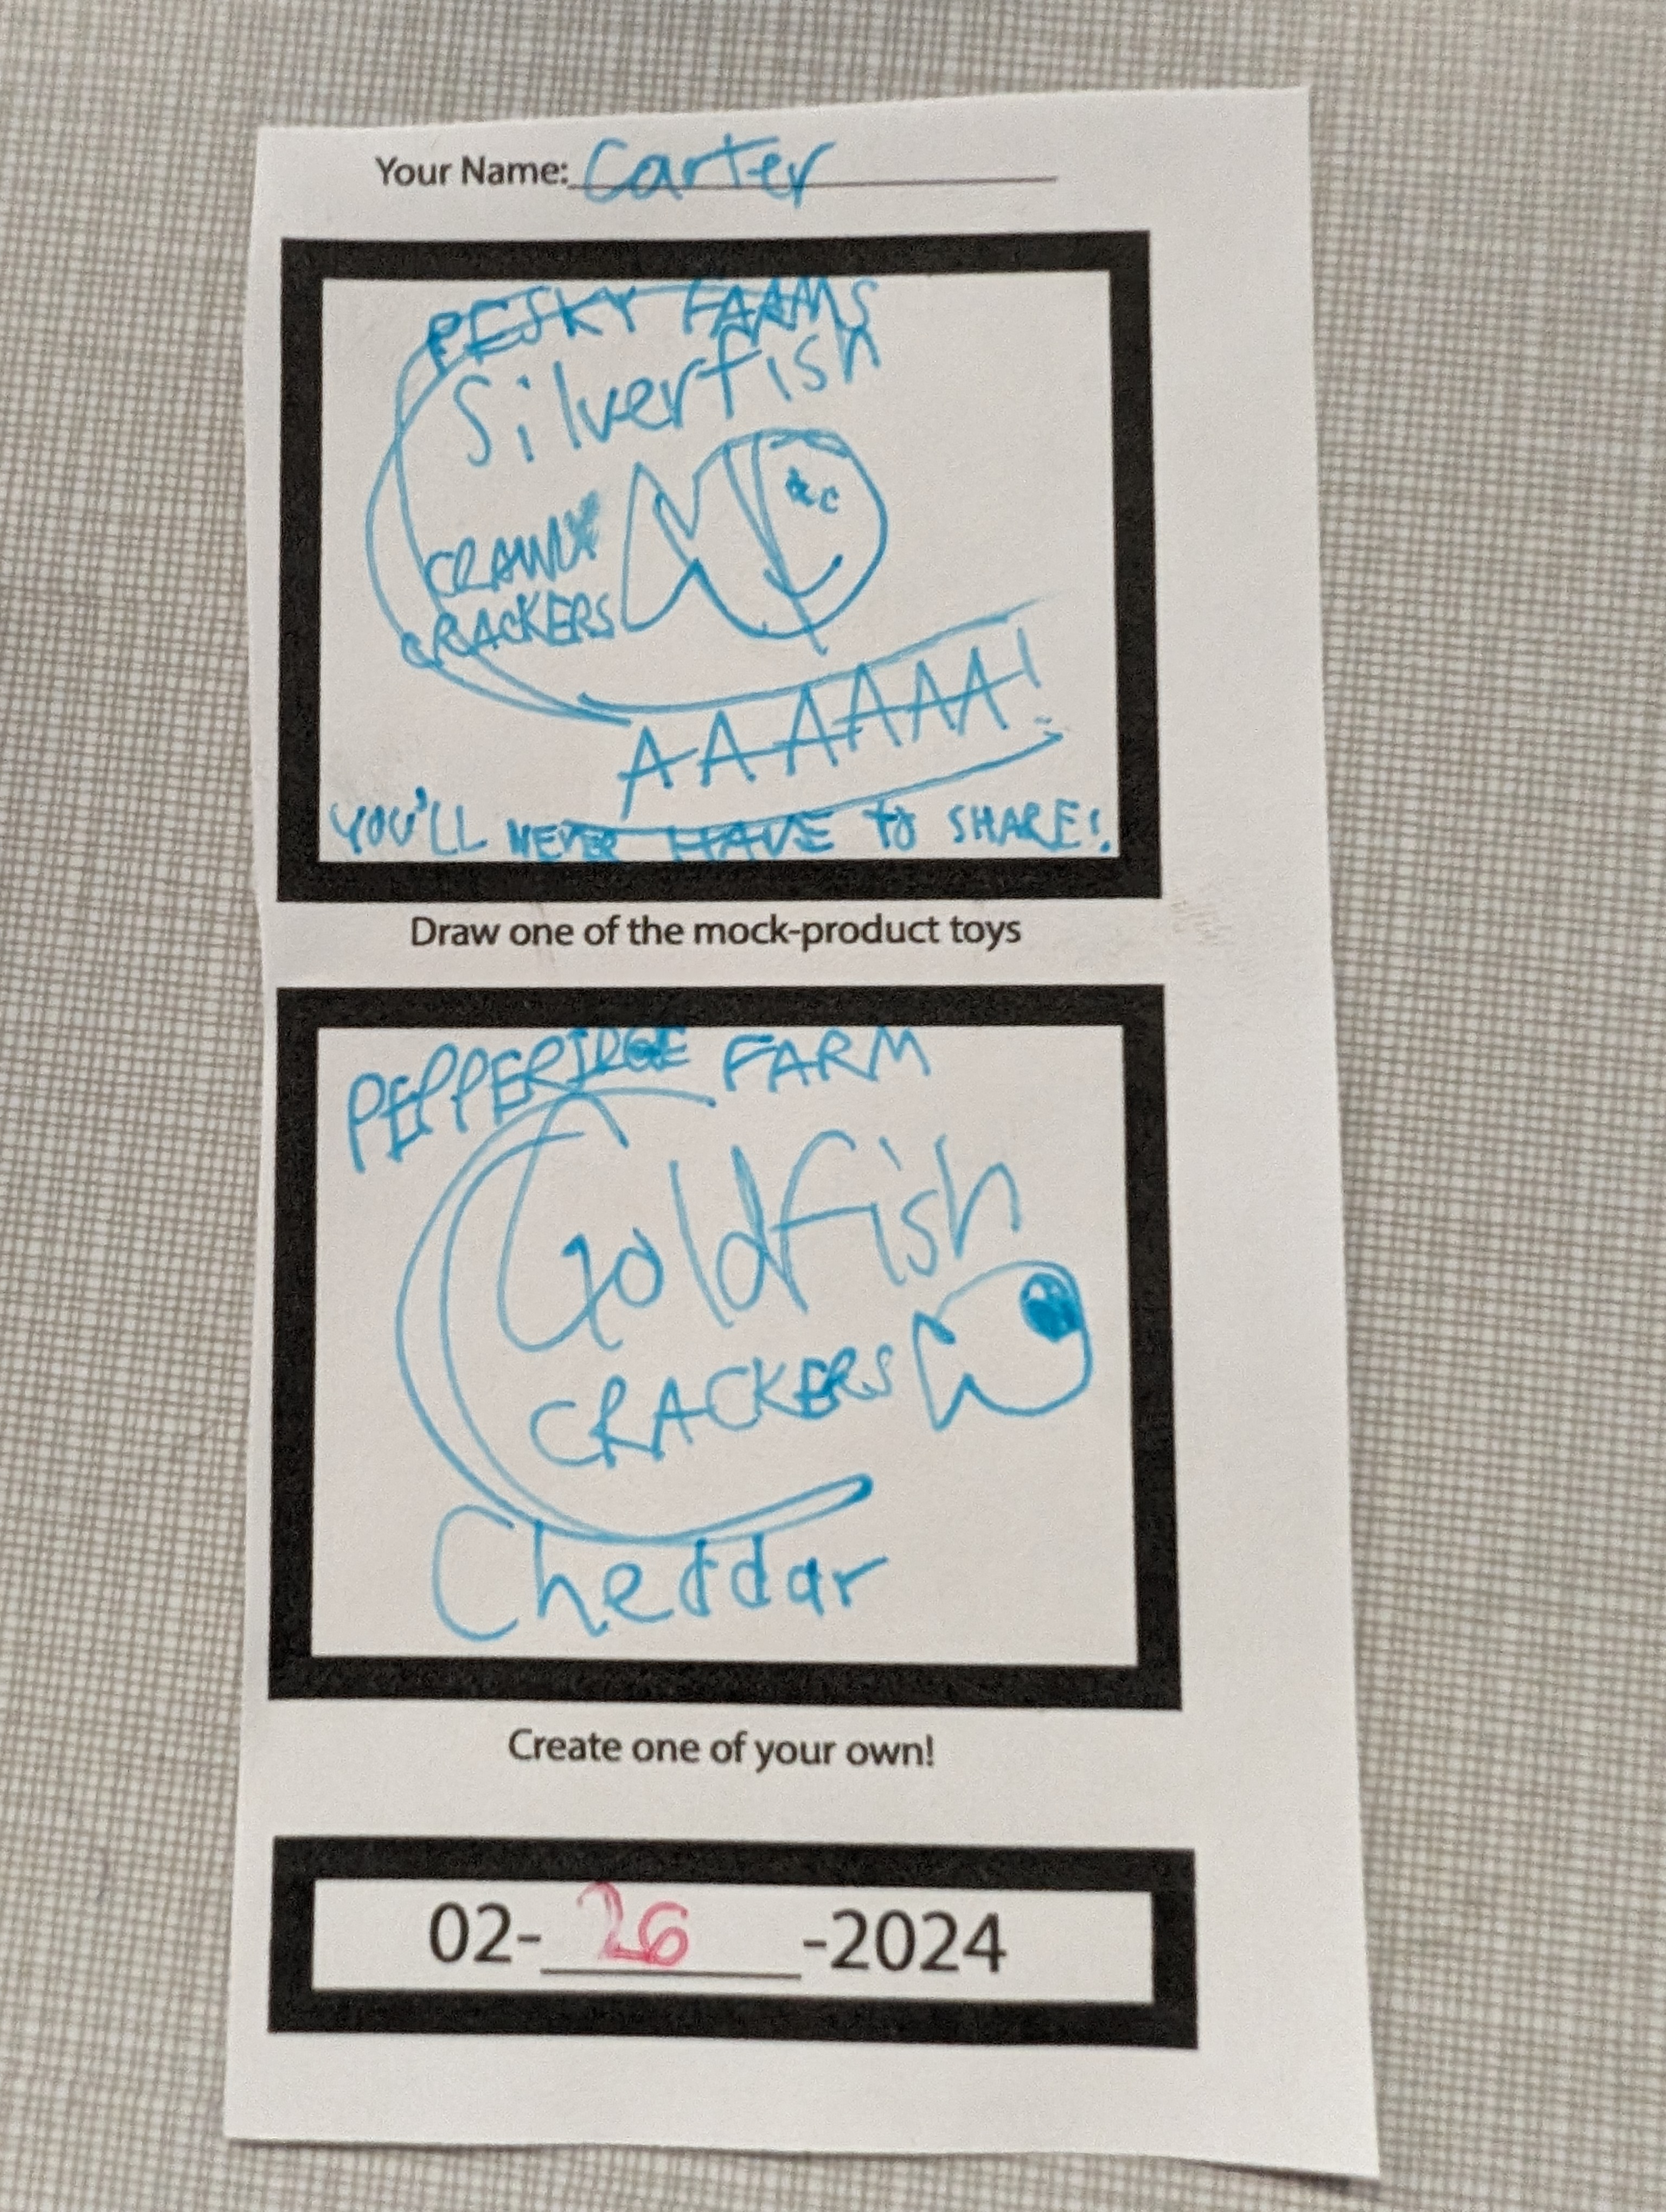 Your Name: Carter
PESKY FARMS
Silverfish
CRAWLY
CRACKERS
AAAAAA!
YOU'LL NEVER HAVE to SHARE!
Draw one of the mock-product toys
PEPPERIDGE FARM
Goldfish
CRACKERS
Cheddar
Create one of your own!
02-26-2024